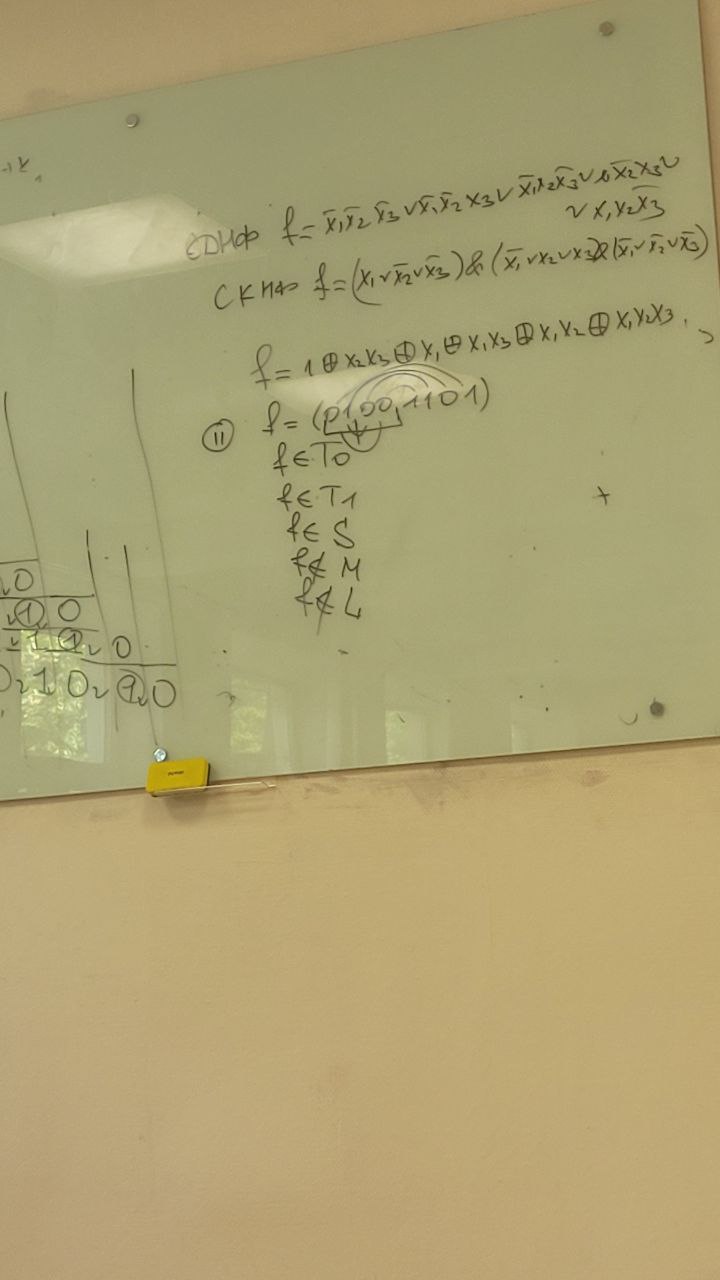 СДНФ f = x̄₁x̄₂x̄₃ ∨ x̄₁x̄₂x₃ ∨ x̄₁x₂x̄₃ ∨ x̄₂x₃ ∨
∨ x₁x₂x̄₃
СКНФ f = (x₁ ∨ x̄₂ ∨ x̄₃) & (x̄₁ ∨ x₂ ∨ x₃) & (x̄₁ ∨ x̄₂ ∨ x̄₃)
f = 1 ⊕ x₂x₃ ⊕ x₁ ⊕ x₁x₃ ⊕ x₁x₂ ⊕ x₁x₂x₃.
⑪ f = (0100,1101)
f ∈ T₀
f ∈ T₁
f ∈ S
f ∉ M
f ∉ L
0
① 0
1 ① 0
0 1 0 ① 0